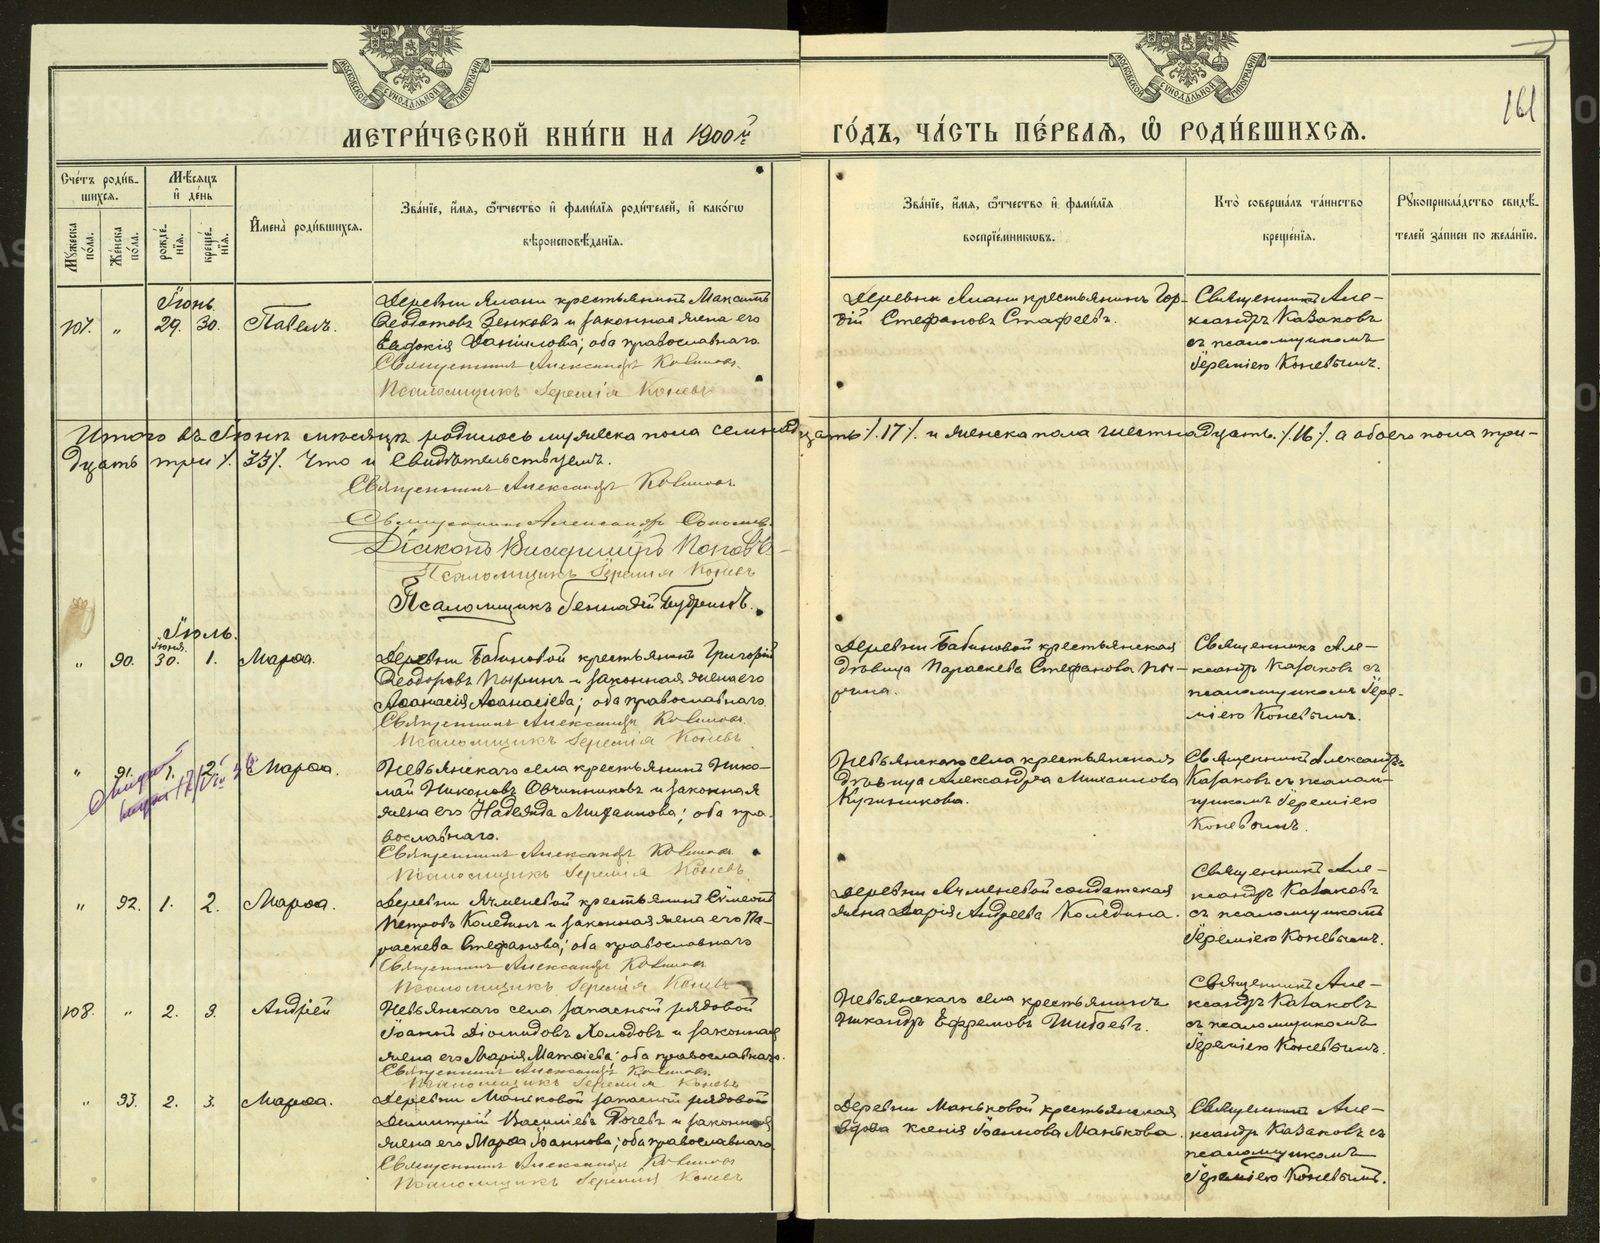 МОСКОВСКОЙ СѴНОДАЛЬНОЙ ТИПОГРАФІИ
МОСКОВСКОЙ СѴНОДАЛЬНОЙ ТИПОГРАФІИ
161
МЕТРИ́ЧЕСКОЙ КНИ́ГИ НА 1900й ГО́ДЪ, ЧА́СТЬ ПЕ́РВАЯ, Ѽ РОДИ́ВШИХСЯ.
Сче́тъ роди́в-
шихся.
Мꙋжеска по́ла.
Же́нска по́ла.
Мѣ́сяцъ и҆ де́нь
рожде́-
нїя.
креще́-
нїя.
И҆мена̀ роди́вшихся.
Зва́нїе, и҆́мя, ѻ҆́тчество и҆ фами́лїя роди́телей, и҆ како́гѡ
вѣроисповѣ́данїя.
Зва́нїе, и҆́мя, ѻ҆́тчество и҆ фами́лїя
воспрїе́мникѡвъ.
Кто̀ соверша́лъ та́инство
креще́нїя.
Рꙋкоприкла́дство свидѣ́-
телей за́писи по жела́нїю.
Іюнь
107. „ 29. 30. Павелъ.
Деревни Ялани крестьянинъ Максимъ
Ѳеодотовъ Зенковъ и законная жена его
Евдокія Даніилова; оба православнаго
Священникъ Александръ Казаковъ
Псаломщикъ Іеремія Коневъ
Деревни Ялани крестьянинъ Гор-
дій Стефановъ Стафеевъ.
Священникъ Але-
ксандръ Казаковъ
съ псаломщикомъ
Іереміею Коневымъ.
Итого въ Іюнѣ мѣсяцѣ родилось мужеска пола семнадцать /.17/. и женска пола шестнадцать /.16/. а обоего пола три-
дцать три /.33/. Что и свидѣтельствуемъ.
Священникъ Александръ Казаковъ
Священникъ Александръ
Діаконъ Владиміръ Поповъ
Псаломщикъ Іеремія Коневъ
Псаломщикъ Геннадій
Іюль.
„ 90. Іюня 30. 1. Марѳа.
Деревни Бабиновой крестьянинъ Григорій
Ѳеодоровъ Пыринъ и законная жена его
Аѳанасія Аѳанасіева; оба православнаго
Священникъ Александръ Казаковъ
Псаломщикъ Іеремія Коневъ
Деревни Бабиновой крестьянская
дѣвица Параскева Стефанова Пы-
рина.
Священникъ Але-
ксандръ Казаковъ съ
псаломщикомъ Іере-
міею Коневымъ.
„ 91. 1. 2. Марѳа.
Невьянскаго села крестьянинъ Нико-
лай Никоновъ Овчинниковъ и законная
жена его Надежда Михаилова; оба пра-
вославнаго.
Священникъ Александръ Казаковъ
Псаломщикъ Іеремія Коневъ
Невьянскаго села крестьянская
дѣвица Александра Михаилова
Кучникова.
Священникъ Александръ
Казаковъ съ псалом-
щикомъ Іереміею
Коневымъ.
„ 92. 1. 2. Марѳа.
Деревни Ячменевой крестьянинъ Сѵмеонъ
Петровъ Колединъ и законная жена его Па-
раскева Стефанова; оба православнаго
Священникъ Александръ Казаковъ
Псаломщикъ Іеремія Коневъ
Деревни Ячменевой солдатская
жена Дарія Андреева Коледина.
Священникъ Але-
ксандръ Казаковъ
съ псаломщикомъ
Іереміею Коневымъ.
108. „ 2. 3. Андрій
Невьянскаго села запасный рядовой
Іоаннъ Діомидовъ Холодовъ и законная
жена его Марія Матѳіева; оба православнаго.
Священникъ Александръ Казаковъ
Псаломщикъ Іеремія Коневъ
Невьянскаго села крестьянинъ
Никандръ Ефремовъ Шибаевъ.
Священникъ Але-
ксандръ Казаковъ
съ псаломщикомъ
Іереміею Коневымъ.
„ 93. 2. 3. Марѳа.
Деревни Маньковой запасный рядовой
Димитрій Василіевъ и законная
жена его Марѳа Іоаннова; оба православнаго
Священникъ Александръ Казаковъ
Псаломщикъ Іеремія Коневъ
Деревни Маньковой крестьянская
вдова Ксенія Іоаннова Манькова.
Священникъ Але-
ксандръ Казаковъ съ
псаломщикомъ
Іереміею Коневымъ.